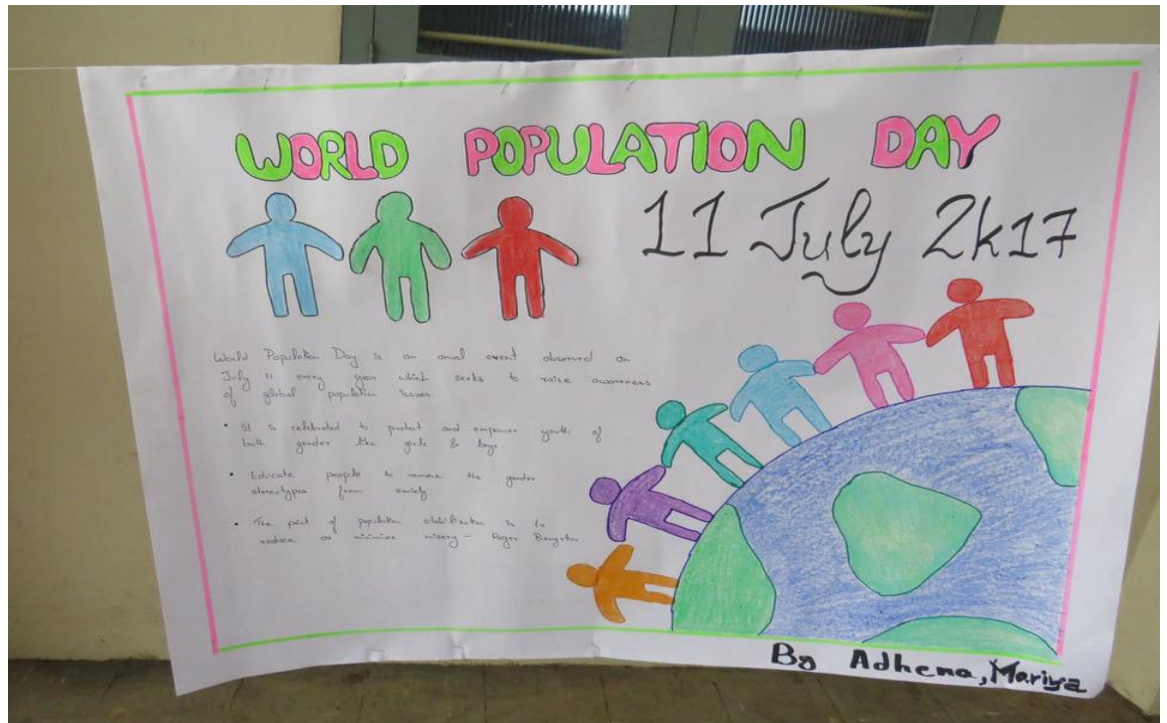 WORLD POPULATION DAY
11 July 2k17
World Population Day is an anual event observed on
July 11 every year which seeks to raise awareness
of global population issues.
• It is celebrated to protect and empower youth of
both gender like girls & boys
• Educate people to remove the gender
stereotypes from society
• The point of population stabilization is to
reduce or minimize misery - Roger Bengston
By Adhena, Mariya